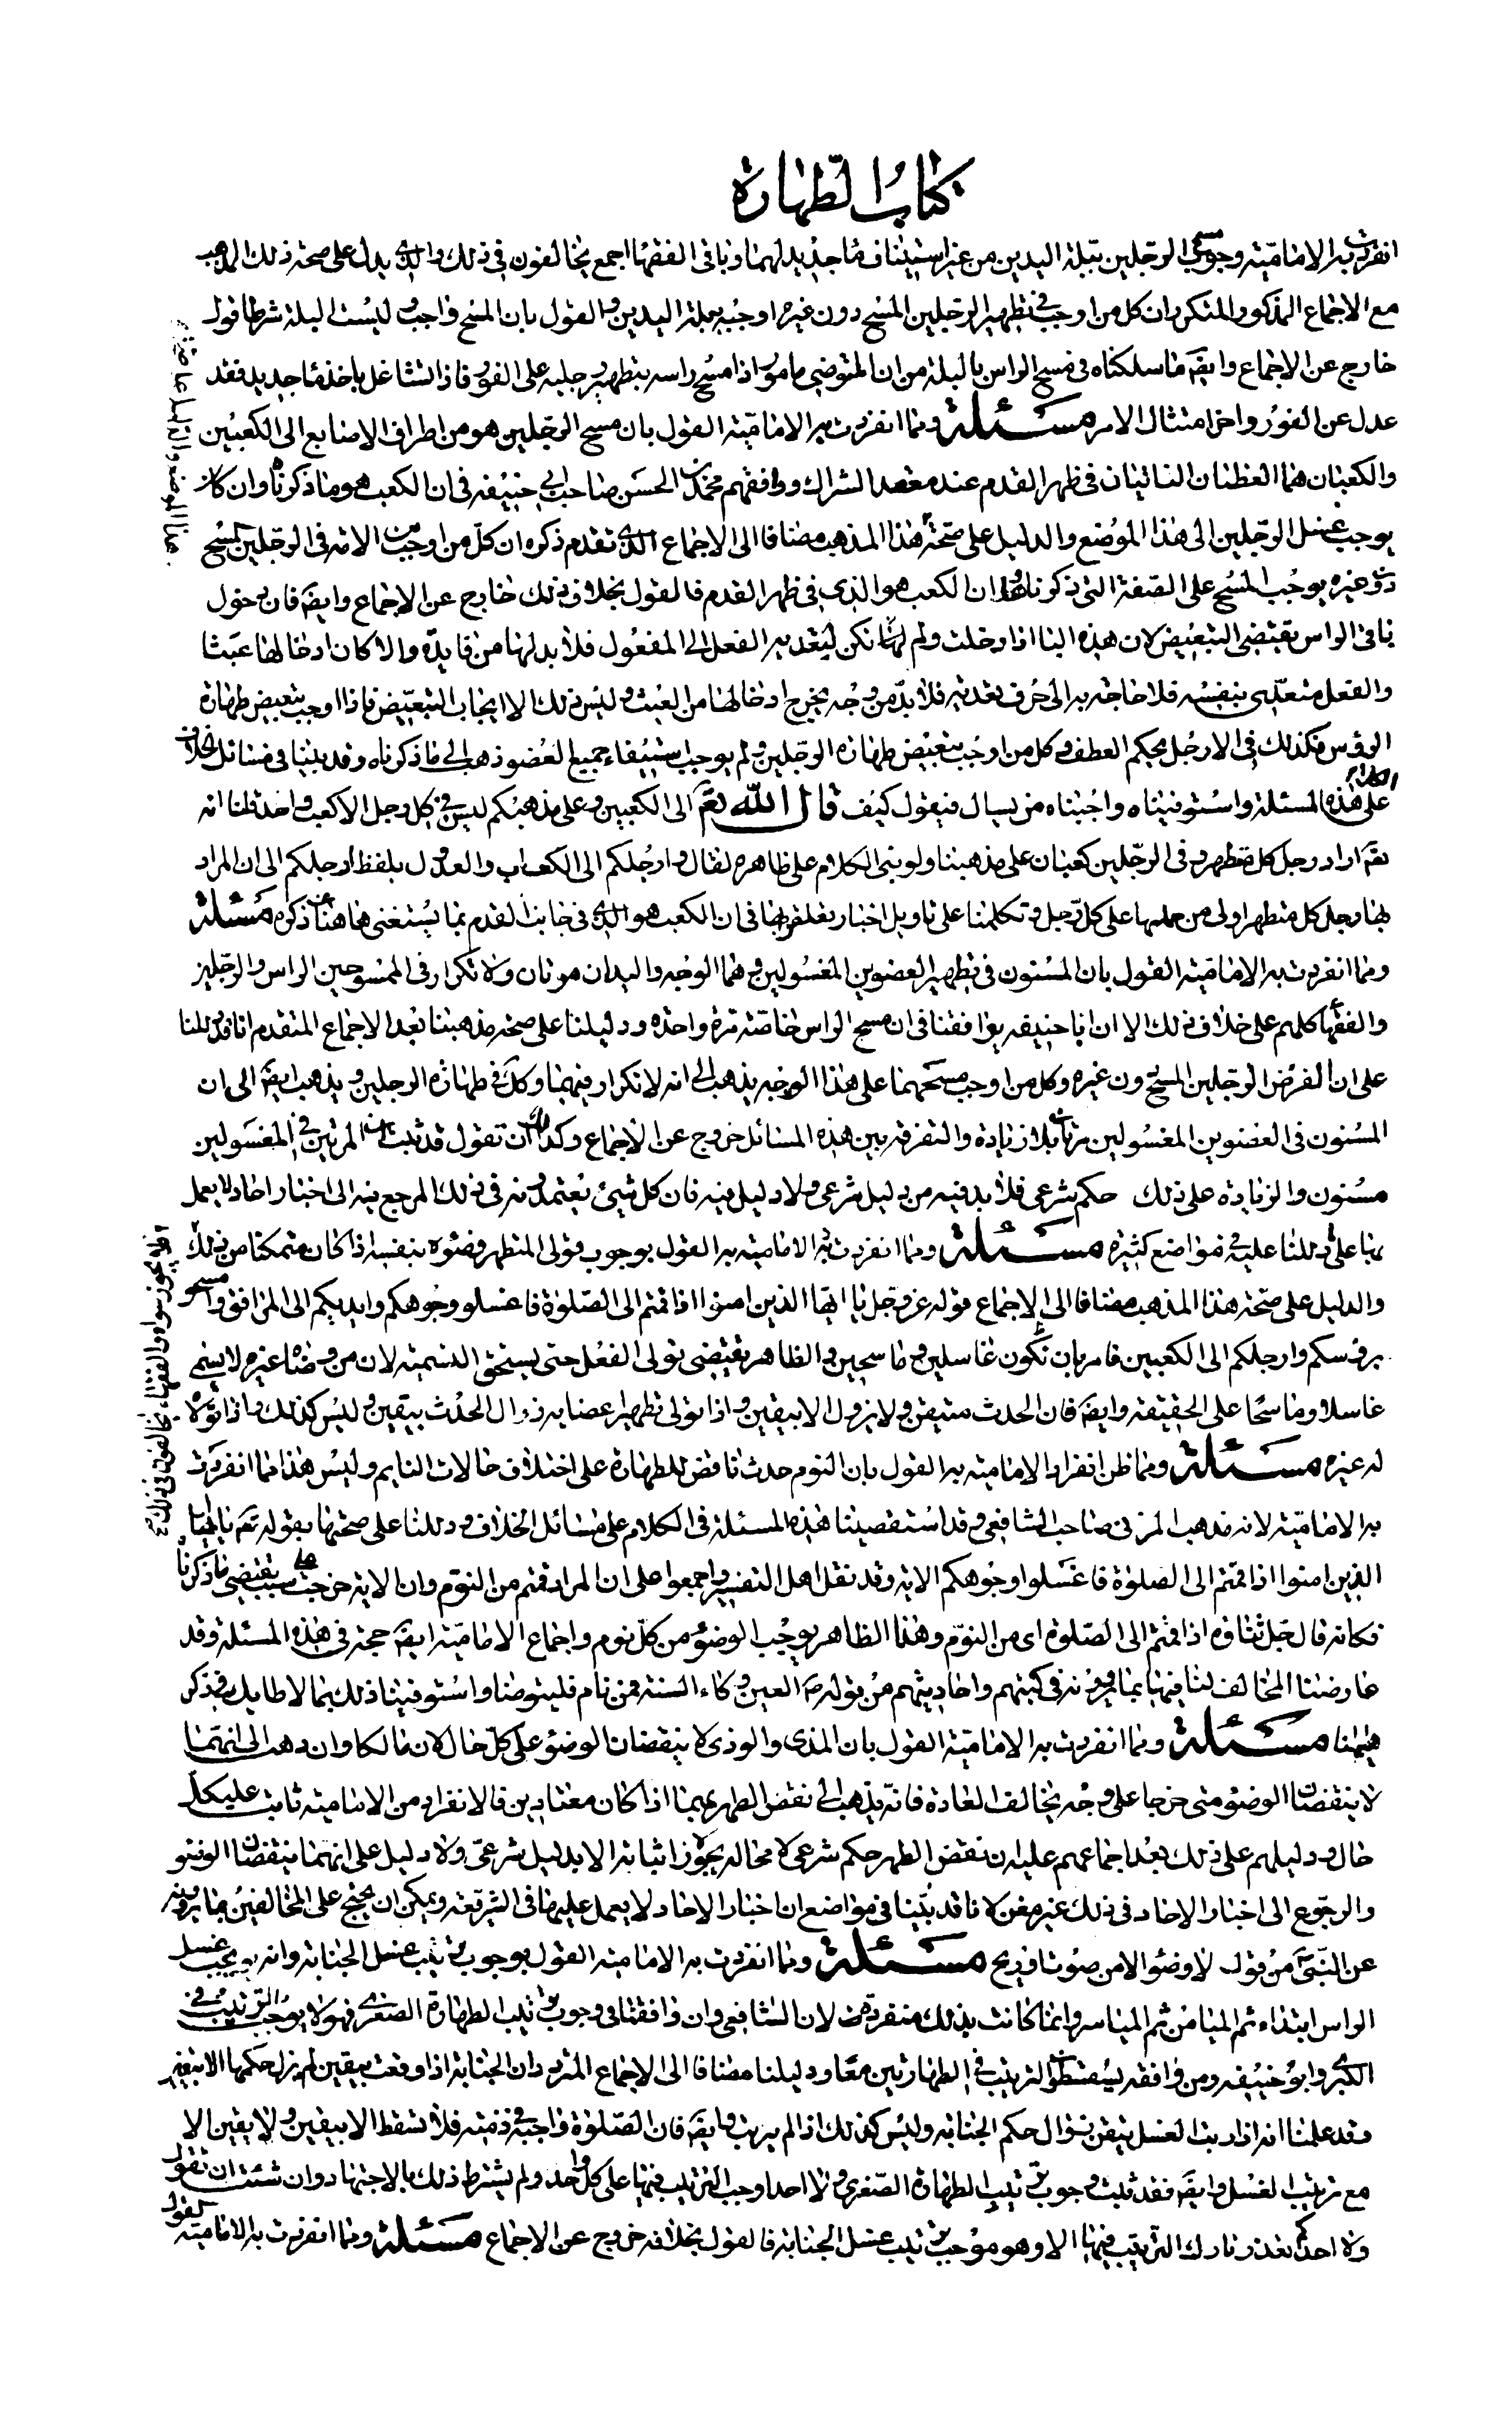 كتاب الطهارة
انفردت به الامامية وجوب مسح الرجلين ببلة اليدين من غير استيناف ماء جديد لهما وباقى الفقهاء اجمع يخالفون فى ذلك والذى يدل على صحة ذلك المذهب
مع الاجماع المذكور المتكرر ان كل من اوجب فى تطهير الرجلين المسح دون غيره اوجبه ببلة اليدين والقول بان المسح واجب وليست البلة شرطا قول
خارج عن الاجماع وايضَ ما سلكناه فى مسح الراس بالبلة من ان المتوضى مامور اذا مسح راسه بتطهير رجليه على الفور فاذا تشاغل باخذ ماء جديد فقد
عدل عن الفور واخر امتثال الامر مسئلة ومما انفردت به الامامية القول بان مسح الرجلين هو من اطراف الاصابع الى الكعبين
والكعبان هما العظمان الناتيان فى ظهر القدم عند معقد الشراك ووافقهم محمد بن الحسن صاحب ابى حنيفه فى ان الكعب هو ما ذكرناه وان كان
يوجب غسل الرجلين الى هذا الموضع والدليل على صحة هذا المذهب مضافا الى الاجماع الذى تقدم ذكره ان كل من اوجب من الامة فى الرجلين المسح
دون غيره يوجب المسح على الصفة التى ذكرناها وان الكعب هو الذى فى ظهر القدم فالقول بخلاف ذلك خارج عن الاجماع وايضَ فان دخول
باء فى الراس يقتضى التبعيض لان هذه الباء اذا دخلت ولم تكن لتعدية الفعل الى المفعول فلا بد لها من فايدة والا كان ادخالها عبثا
والفعل متعدى بنفسه فلا حاجة به الى حرف تعدية فلا بد من وجه يخرج ادخالها من العبث وليس ذلك الا ايجاب التبعيض فاذا اوجب تبعيض طهارة
الروس فكذلك فى الارجل بحكم العطف وكل من اوجب تبعيض طهارة الرجلين ولم يوجب استيفاء جميع العضو ذهب الى ما ذكرناه وقد بينا فى مسائل الخلاف
الكلام على هذه المسئلة واستوفيناه واجبناه من يسال فيقول كيف قال الله تعَ الى الكعبين وعلى مذهبكم ليس فى كل رجل الا كعب واحد قلنا انه
تعَ اراد رجل كل متطهر وفى الرجلين كعبان على مذهبنا ولو بنى الكلام على ظاهره لقال وارجلكم الى الكعاب والعدول بلفظ ارجلكم الى ان المراد
بها رجل كل متطهر اولى من حملها على كل رجل وتكلمنا على تاويل اخبار تعلقوا بها فى ان الكعب هو الذى فى جانب القدم بما يستغنى هاهنا عن ذكره مسئلة
ومما انفردت به الامامية القول بان المسنون فى تطهير العضوين المغسولين وهما الوجه واليدان مرتان ولا تكرار فى الممسوحين الراس والرجلين
والفقهاء كلهم على خلاف ذلك الا ان ابا حنيفه يوافقنا فى ان مسح الراس خاصة مرة واحدة ودليلنا على صحة مذهبنا بعد الاجماع المتقدم انا قد دللنا
على ان الفرض الرجلين المسح دون غيره وكل من اوجب مسحهما على هذا الوجه يذهب الى انه لا تكرار فيهما وكل فى طهارة الرجلين ويذهب ايضَ الى ان
المسنون فى العضوين المغسولين مرتان بلا زيادة والتفرقة بين هذه المسائل خروج عن الاجماع وكذلك ان تقول قد ثبت ان المرتين فى المغسولين
مسنون والزيادة على ذلك حكم شرعى فلا بد فيه من دليل شرعى ولا دليل فيه فان كل شىء يعتمدونه فى ذلك المرجع فيه الى اخبار احاد لا يعمل
بها على ما دللنا عليه فى مواضع كثيرة مسئلة ومما انفردت به الامامية القول بوجوب تولى المتطهر وضوءه بنفسه اذا كان متمكنا من ذلك
والدليل على صحة هذا المذهب مضافا الى الاجماع قوله عز وجل يا ايها الذين امنوا اذا قمتم الى الصلوة فاغسلوا وجوهكم وايديكم الى المرافق وامسحوا
بروسكم وارجلكم الى الكعبين فامر بان نكون غاسلين وماسحين والظاهر يقتضى تولى الفعل حتى يستحق التسمية لان من وضاه غيره لا يسمى
غاسلا وماسحا على الحقيقة وايضَ فان الحدث متيقن ولا يزول الا بيقين واذا تولى تطهير اعضايه زال الحدث بيقين وليس كذلك اذا تولاه
له غيره مسئلة ومما ظن انفراد الامامية به القول بان النوم حدث ناقض للطهارة على اختلاف حالات النايم وليس هذا مما انفردت
به الامامية لانه مذهب المزنى صاحب الشافعى وقد استقصينا هذه المسئلة فى الكلام على مسائل الخلاف ودللنا على صحتها بقوله تعَ يا ايها
الذين امنوا اذا قمتم الى الصلوة فاغسلوا وجوهكم الاية وقد نقل اهل التفسير واجمعوا على ان المراد قمتم من النوم وان الاية خرجت على سبب يقتضى ما ذكرناه
فكانه قال جل ثناؤه اذا قمتم الى الصلوة اى من النوم وهذا الظاهر يوجب الوضوء من كل نوم واجماع الامامية ايضَ حجة فى هذه المسئلة وقد
عارضنا المخالف لنا فيها بما يروونه فى كتبهم واحاديثهم من قوله صَ العين وكاء السته فمن نام فليتوضا واستوفينا ذلك بما لا طايل فى ذكر
هيهنا مسئلة ومما انفردت به الامامية القول بان المذى والوذى لا ينقضان الوضوء على كل حال لان مالكا وان ذهب الى انهما
لا ينقضان الوضوء متى خرجا على وجه يخالف العادة فانه يذهب الى نقض الطهر بهما اذا كان معتادين فالانفراد من الامامية ثابت على كل
حال ودليلهم على ذلك بعد اجماعهم عليه ان نقض الطهر حكم شرعى لا محالة لا يجوز اثباته الا بدليل شرعى ولا دليل على انهما ينقضان الوضوء
والرجوع الى اخبار الاحاد فى ذلك غير مغن لانا قد بينا فى مواضع ان اخبار الاحاد لا يعمل عليها فى الشريعة ويمكن ان يحتج على المخالفين بما يروونه
عن النبى صَ من قوله لا وضوء الا من صوت او ريح مسئلة ومما انفردت به الامامية القول بوجوب ترتيب غسل الجنابة وانه يجب غسل
الراس ابتداء ثم الميامن ثم المياسر وانما كانت بذلك منفردة لان الشافعى وان وافقنا فى وجوب ترتيب الطهارة الصغرى فهو لا يوجب الترتيب فى
الكبرى وابو حنيفه ومن وافقه يسقط الترتيب فى الطهارتين معا ودليلنا مضافا الى الاجماع المتردد ان الجنابة اذا وقعت بيقين لم يزل حكمها الا بيقين
وقد علمنا انه اذا رتب الغسل تيقن زوال حكم الجنابة وليس كذلك اذا لم يرتب وايضَ فان الصلوة واجبة فى ذمته فلا تسقط الا بيقين ولا يقين الا
مع ترتيب الغسل وايضَ فقد ثبت وجوب ترتيب الطهارة الصغرى ولا احد اوجب الترتيب فيها على كل احد ولم يشترط ذلك بالاجتهاد وان شئت ان تقول
ولا احد يعذر تارك الترتيب فيها الا وهو موجب ترتيب غسل الجنابة فالقول بخلافه خروج عن الاجماع مسئلة ومما انفردت به الامامية كقول
والفقهاء يخالفون فى ذلك